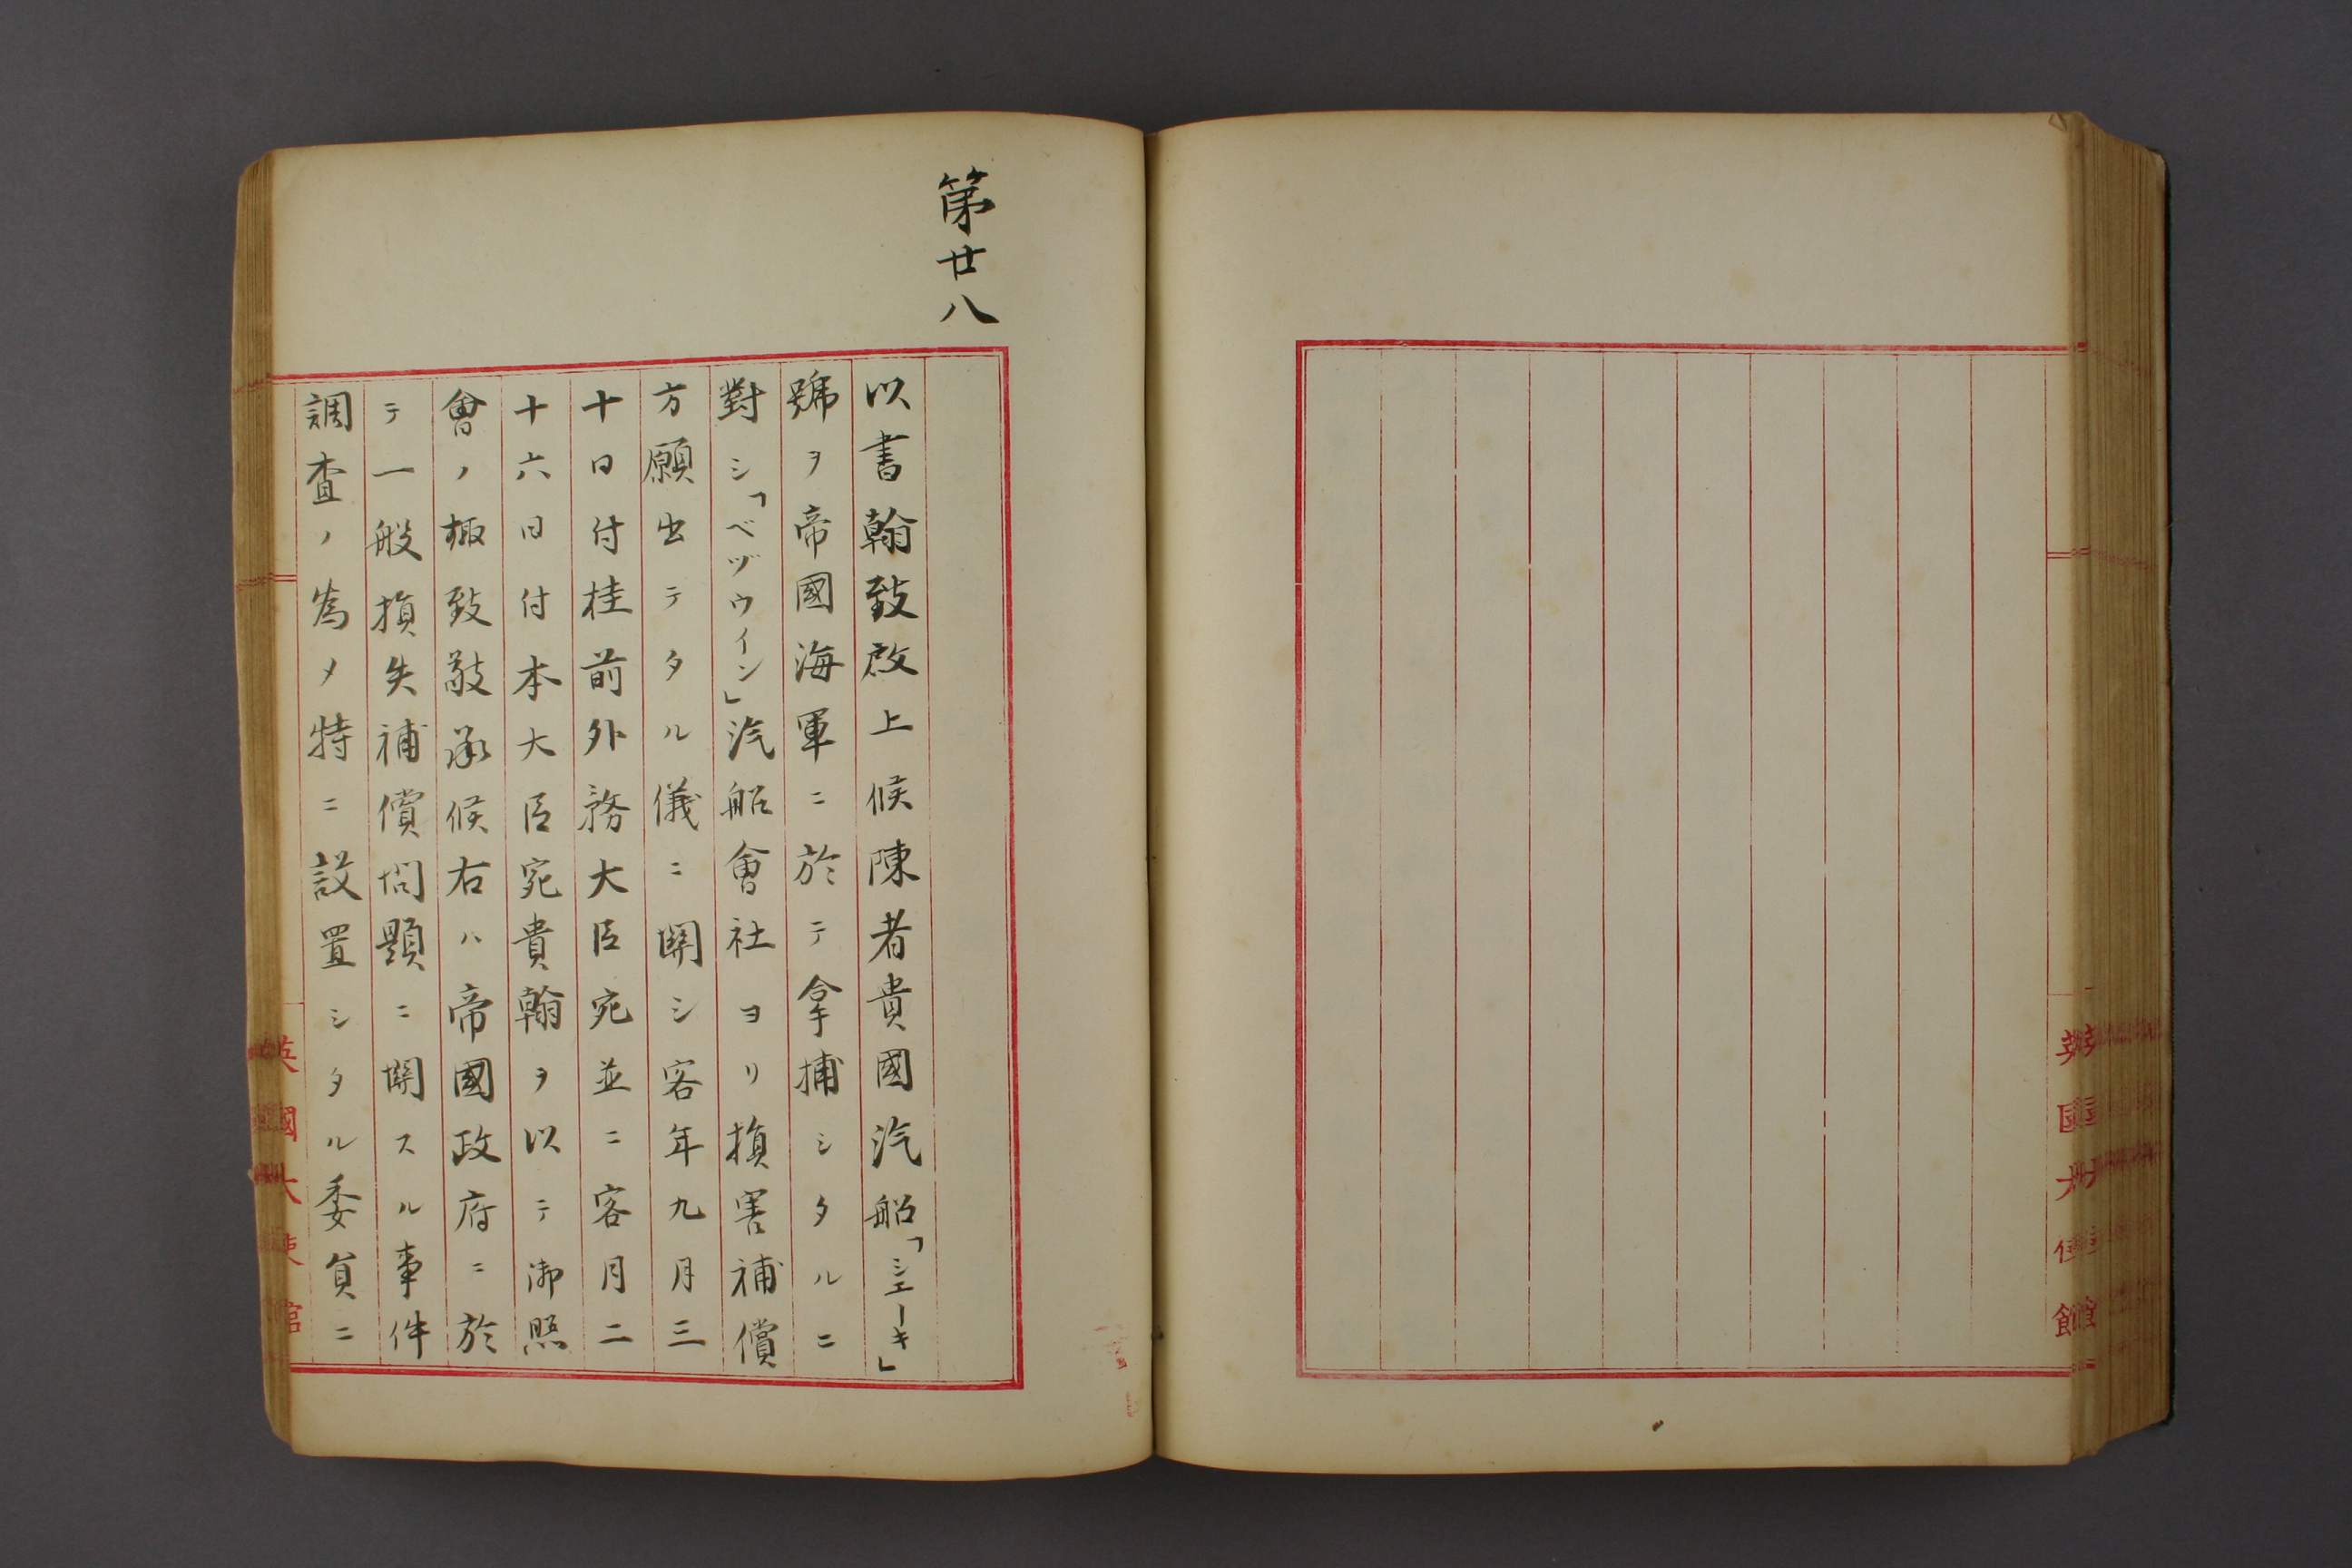 第廿八
以書翰致啟上候陳者貴國汽船「シエーキ」
號ヲ帝國海軍ニ於テ拿捕シタルニ
對シ「ベヅウイン」汽船會社ヨリ損害補償
方願出テタル儀ニ関シ客年九月三
十日付桂前外務大臣宛並ニ客月二
十六日付本大臣宛貴翰ヲ以テ御照
會ノ趣致敬承候右ハ帝國政府ニ於
テ一般損失補償問題ニ関スル事件
調査ノ為メ特ニ設置シタル委員ニ
英國大使館
英國大使館